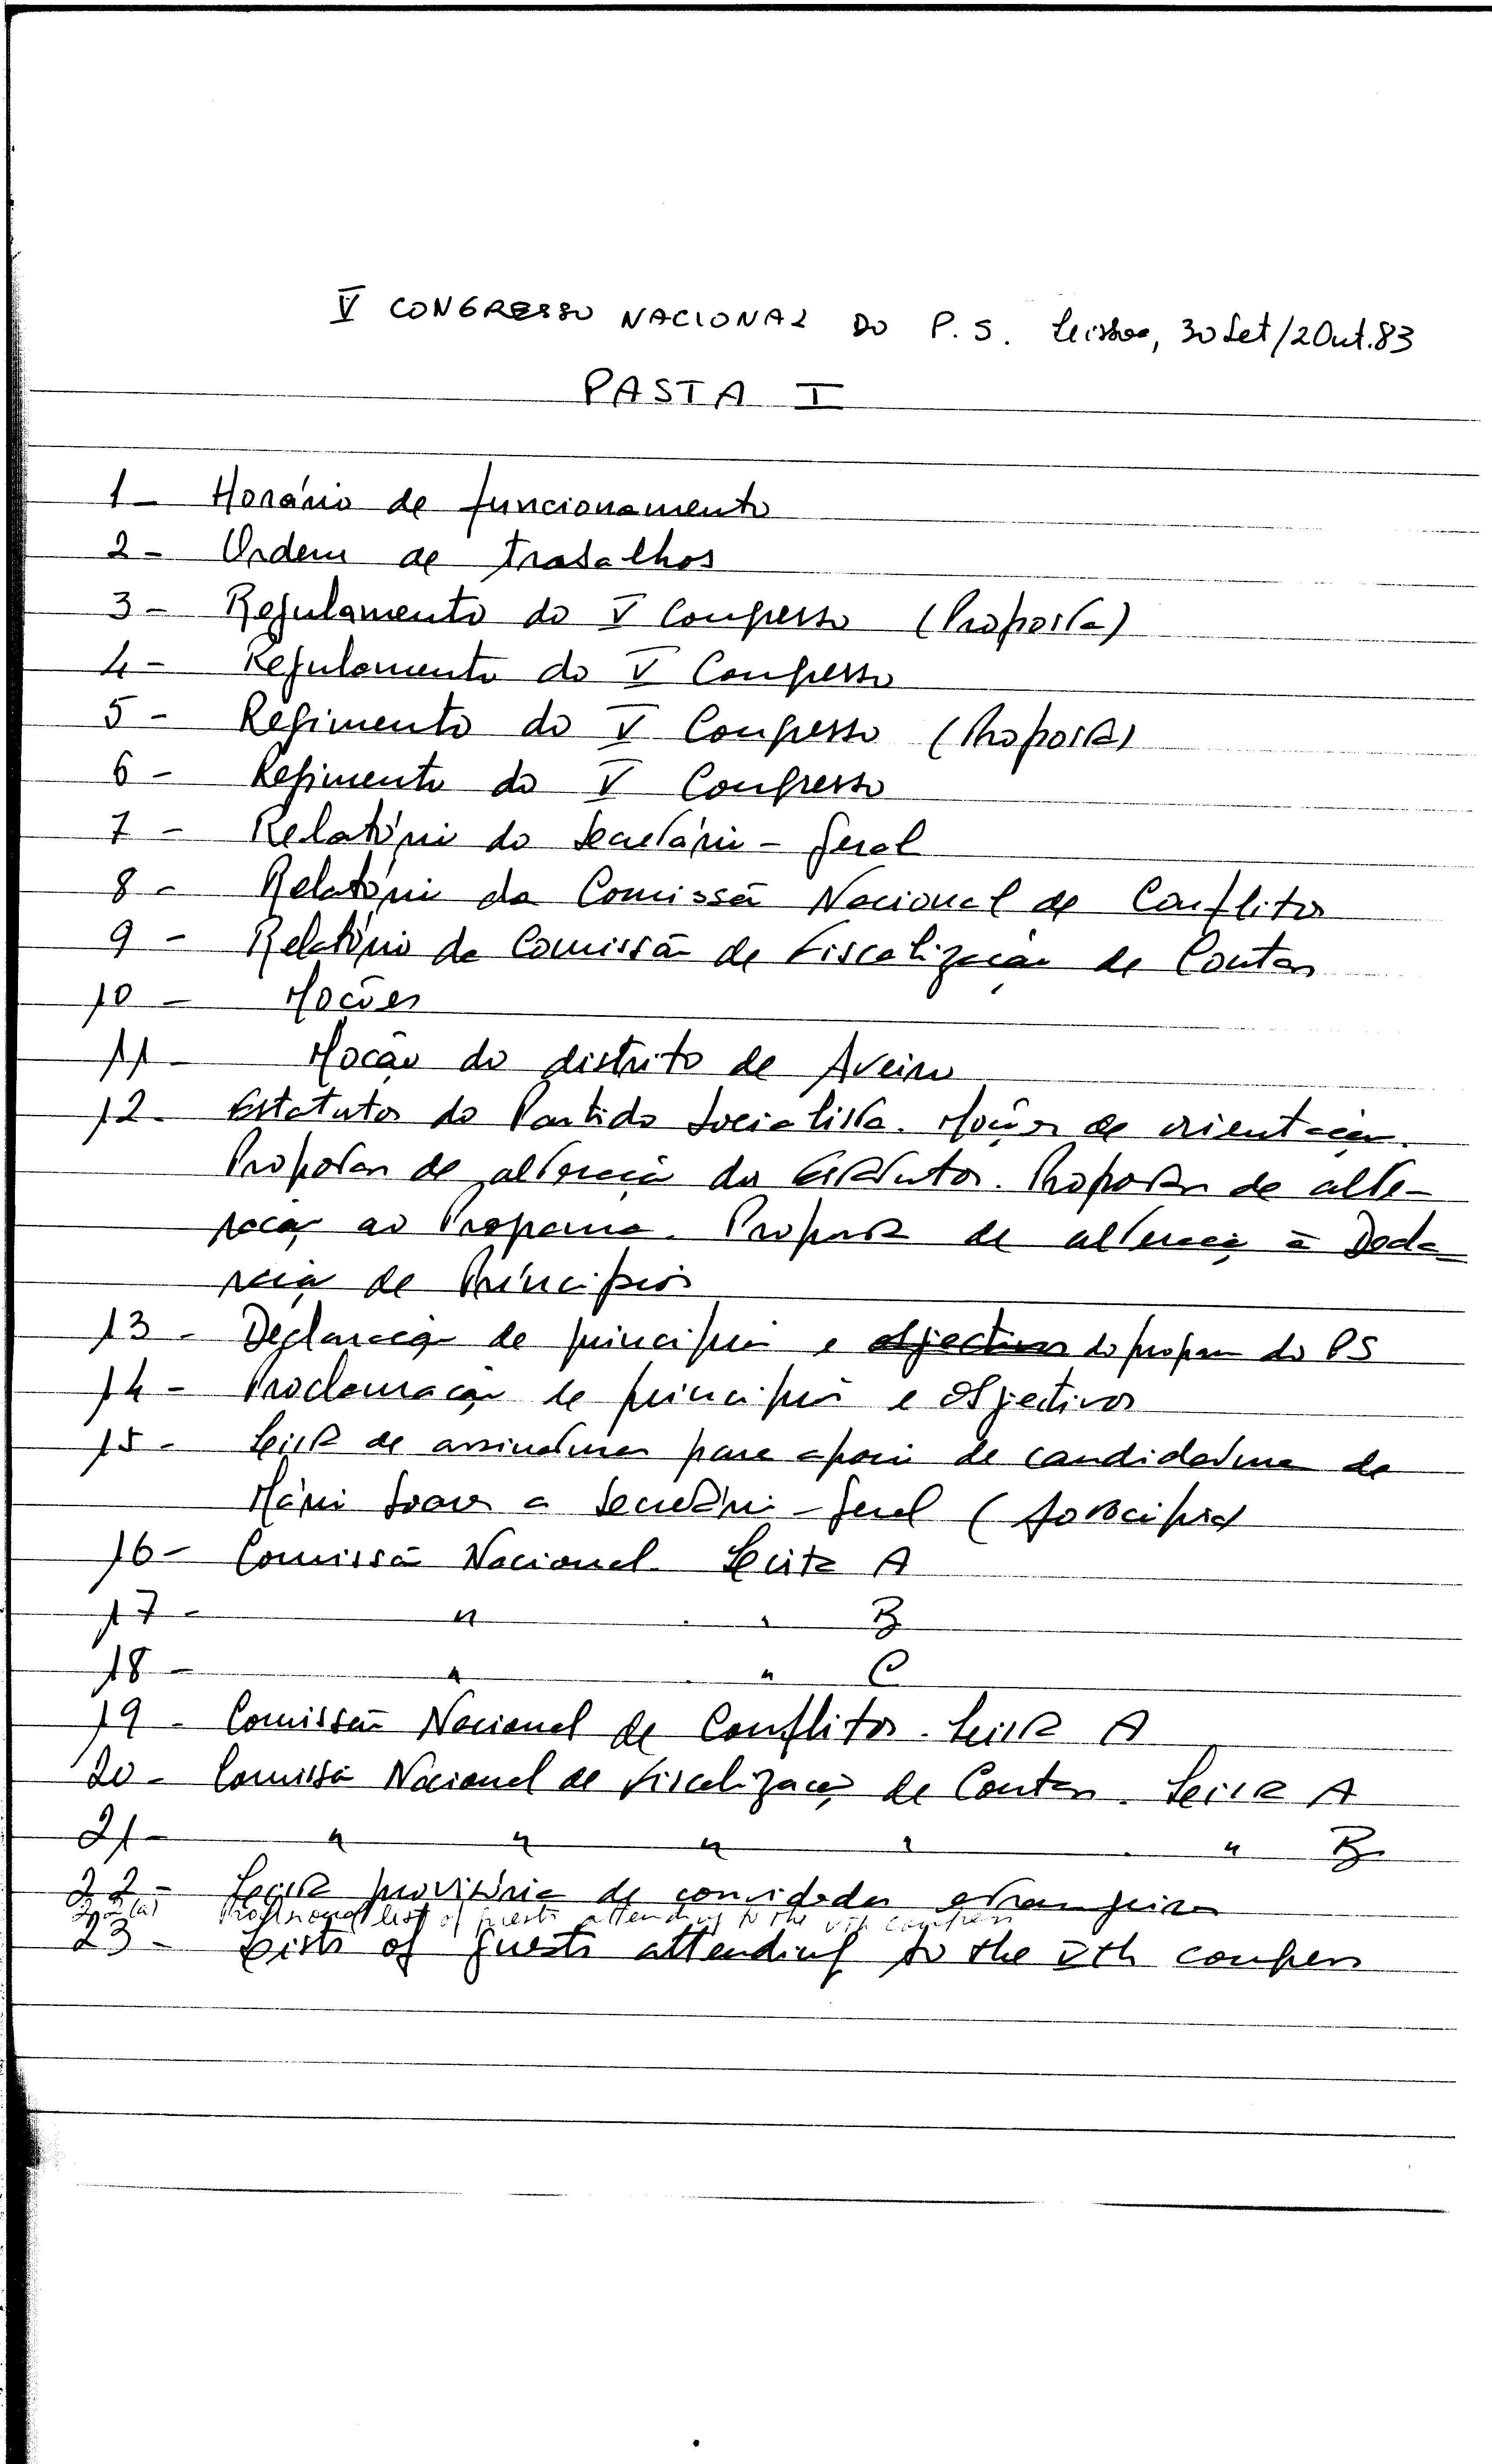 V CONGRESSO NACIONAL DO P.S. Lisboa, 30 Set/2 Out. 83
PASTA I
1 - Horário de funcionamento
2 - Ordem de trabalhos
3 - Regulamento do V Congresso (Proposta)
4 - Regulamento do V Congresso
5 - Regimento do V Congresso (Proposta)
6 - Regimento do V Congresso
7 - Relatório do Secretário-Geral
8 - Relatório da Comissão Nacional de Conflitos
9 - Relatório da Comissão de Fiscalização de Contas
10 - Moções
11 - Moção do distrito de Aveiro
12 - Estatutos do Partido Socialista. Moções de orientação.
Propostas de alteração dos Estatutos. Proposta de alte-
ração ao Programa. Proposta de alteração à Decla-
ração de Princípios
13 - Declaração de princípios e objectivos do program do PS
14 - Proclamação de princípios e objectivos
15 - Lista de assinaturas para apoio de candidatura de
Mário Soares a Secretário-Geral (fotocópia)
16 - Comissão Nacional. Lista A
17 - " " B
18 - " " C
19 - Comissão Nacional de Conflitos. Lista A
20 - Comissão Nacional de Fiscalização de Contas. Lista A
21 - " " " " " B
22 - Lista provisória de convidados estrangeiros
22(a) Provisional list of guests attending to the Vth congress
23 - Lists of guests attending to the Vth congress